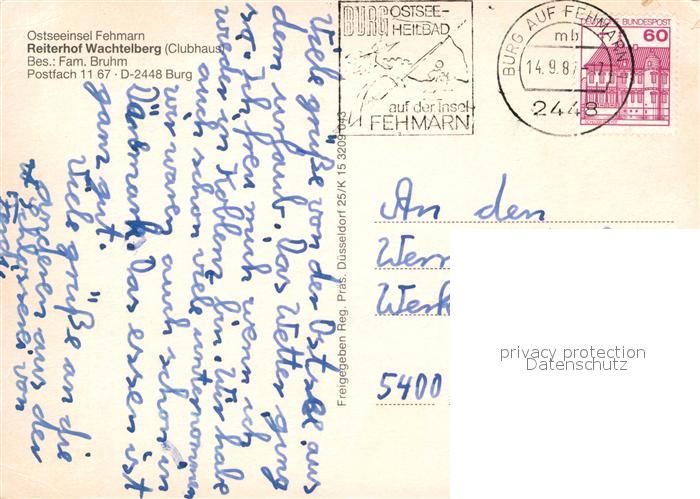 Ostseeinsel Fehmarn
Reiterhof Wachtelberg (Clubhaus)
Bes.: Fam. Bruhm
Postfach 11 67 · D-2448 Burg
BURG OSTSEE-
HEILBAD
auf der Insel
FEHMARN
BURG AUF FEHMARN
mb
14.9.87
2448
DEUTSCHE BUNDESPOST
60
Viele grüße von der Ostsee aus
dem urlaub. Das Wetter ging
so. Ich freu mich wenn ich
wieder in Koblenz bin. Wir habe
auch schon viel unternommen
wir waren auch schon in
Dänemark. Das essen ist
ganz gut.
Viele grüße an die
anderen aus der
Schlosserei von
Freigegeben Reg. Präs. Düsseldorf 25/K 15 3209 043
An den
Wer
Werk
5400
privacy protection
Datenschutz